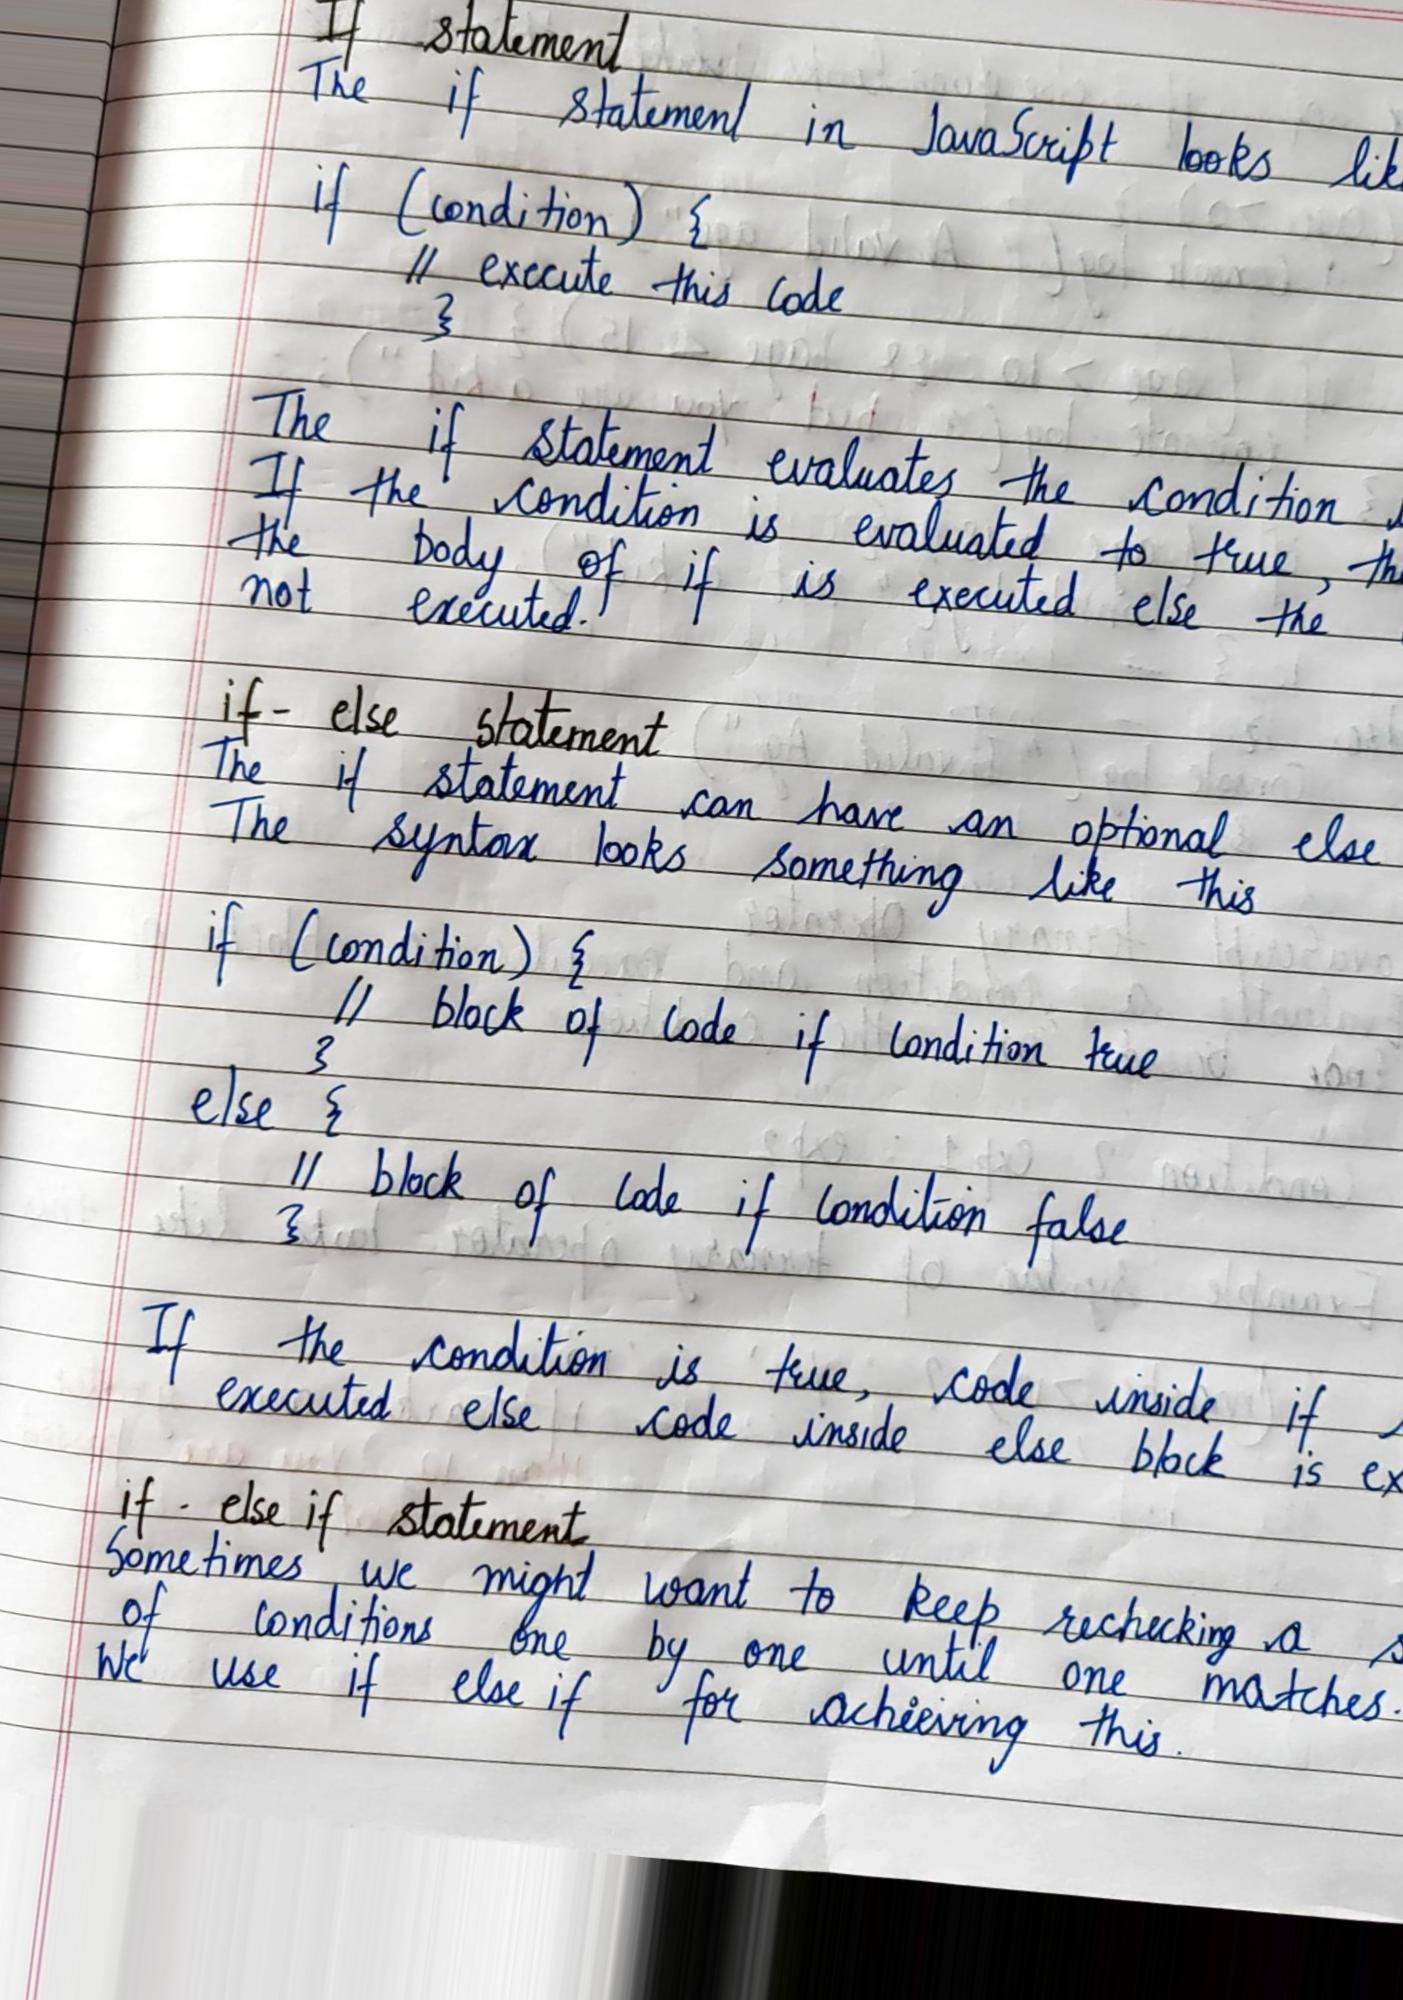 If statement
The if statement in JavaScript looks
if (condition) {
// execute this code
}
The if statement evaluates the condition
If the condition is evaluated to true,
the body of if is executed else the
not executed.
if - else statement
The if statement can have an optional else
The syntax looks something like this
if (condition) {
// block of code if condition true
}
else {
// block of code if condition false
}
If the condition is true, code inside if
executed else code inside else block is
if - else if statement
Sometimes we might want to keep rechecking a
of conditions one by one until one matches.
We use if else if for achieving this.